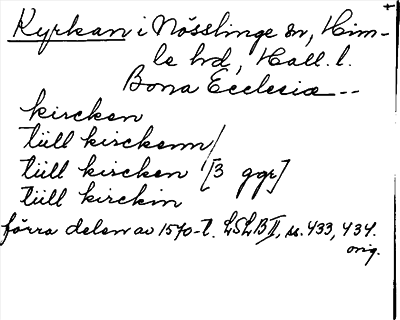 Kyrkan i Nösslinge sn, Him-
le hd, Hall. l.
Bona Ecclesiæ --
kircken
tüll kirckenn/
tüll kircken [3 ggr]
tüll kirckin
förra delen av 1570-t. LSLB II, s. 433, 434.
orig.